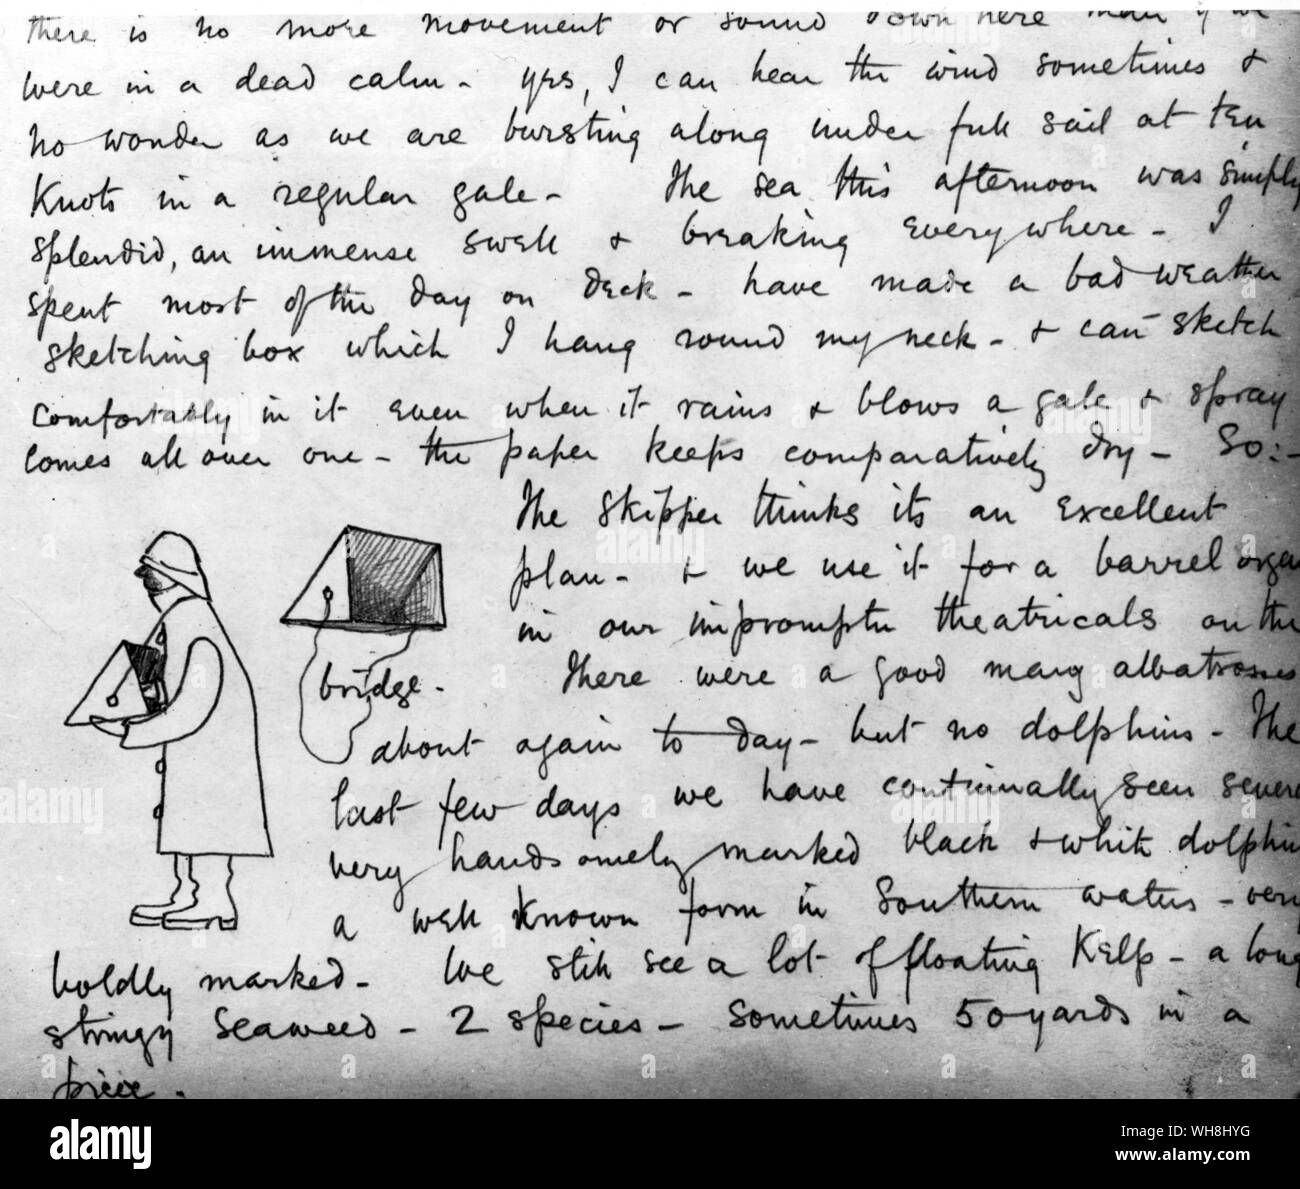 there is no more movement or sound down here than if we
were in a dead calm - yes, I can hear the wind sometimes &
no wonder as we are bursting along under full sail at ten
knots in a regular gale - The sea this afternoon was simply
splendid, an immense swell & breaking everywhere - I
spent most of the day on deck - have made a bad weather
sketching box which I hang round my neck - & can sketch
comfortably in it even when it rains & blows a gale & spray
comes all over one - the paper keeps comparatively dry - So:-
The skipper thinks its an excellent
plan - & we use it for a barrel organ
in our impromptu theatricals on the
bridge - There were a good many albatrosses
about again to day - but no dolphins - The
last few days we have continually seen several
very handsomely marked black & white dolphin
a well known form in Southern waters - very
boldly marked - We still see a lot of floating Kelp - a long
stringy seaweed - 2 species - sometimes 50 yards in a
piece -
alamy
Image ID: WH8HYG
www.alamy.com